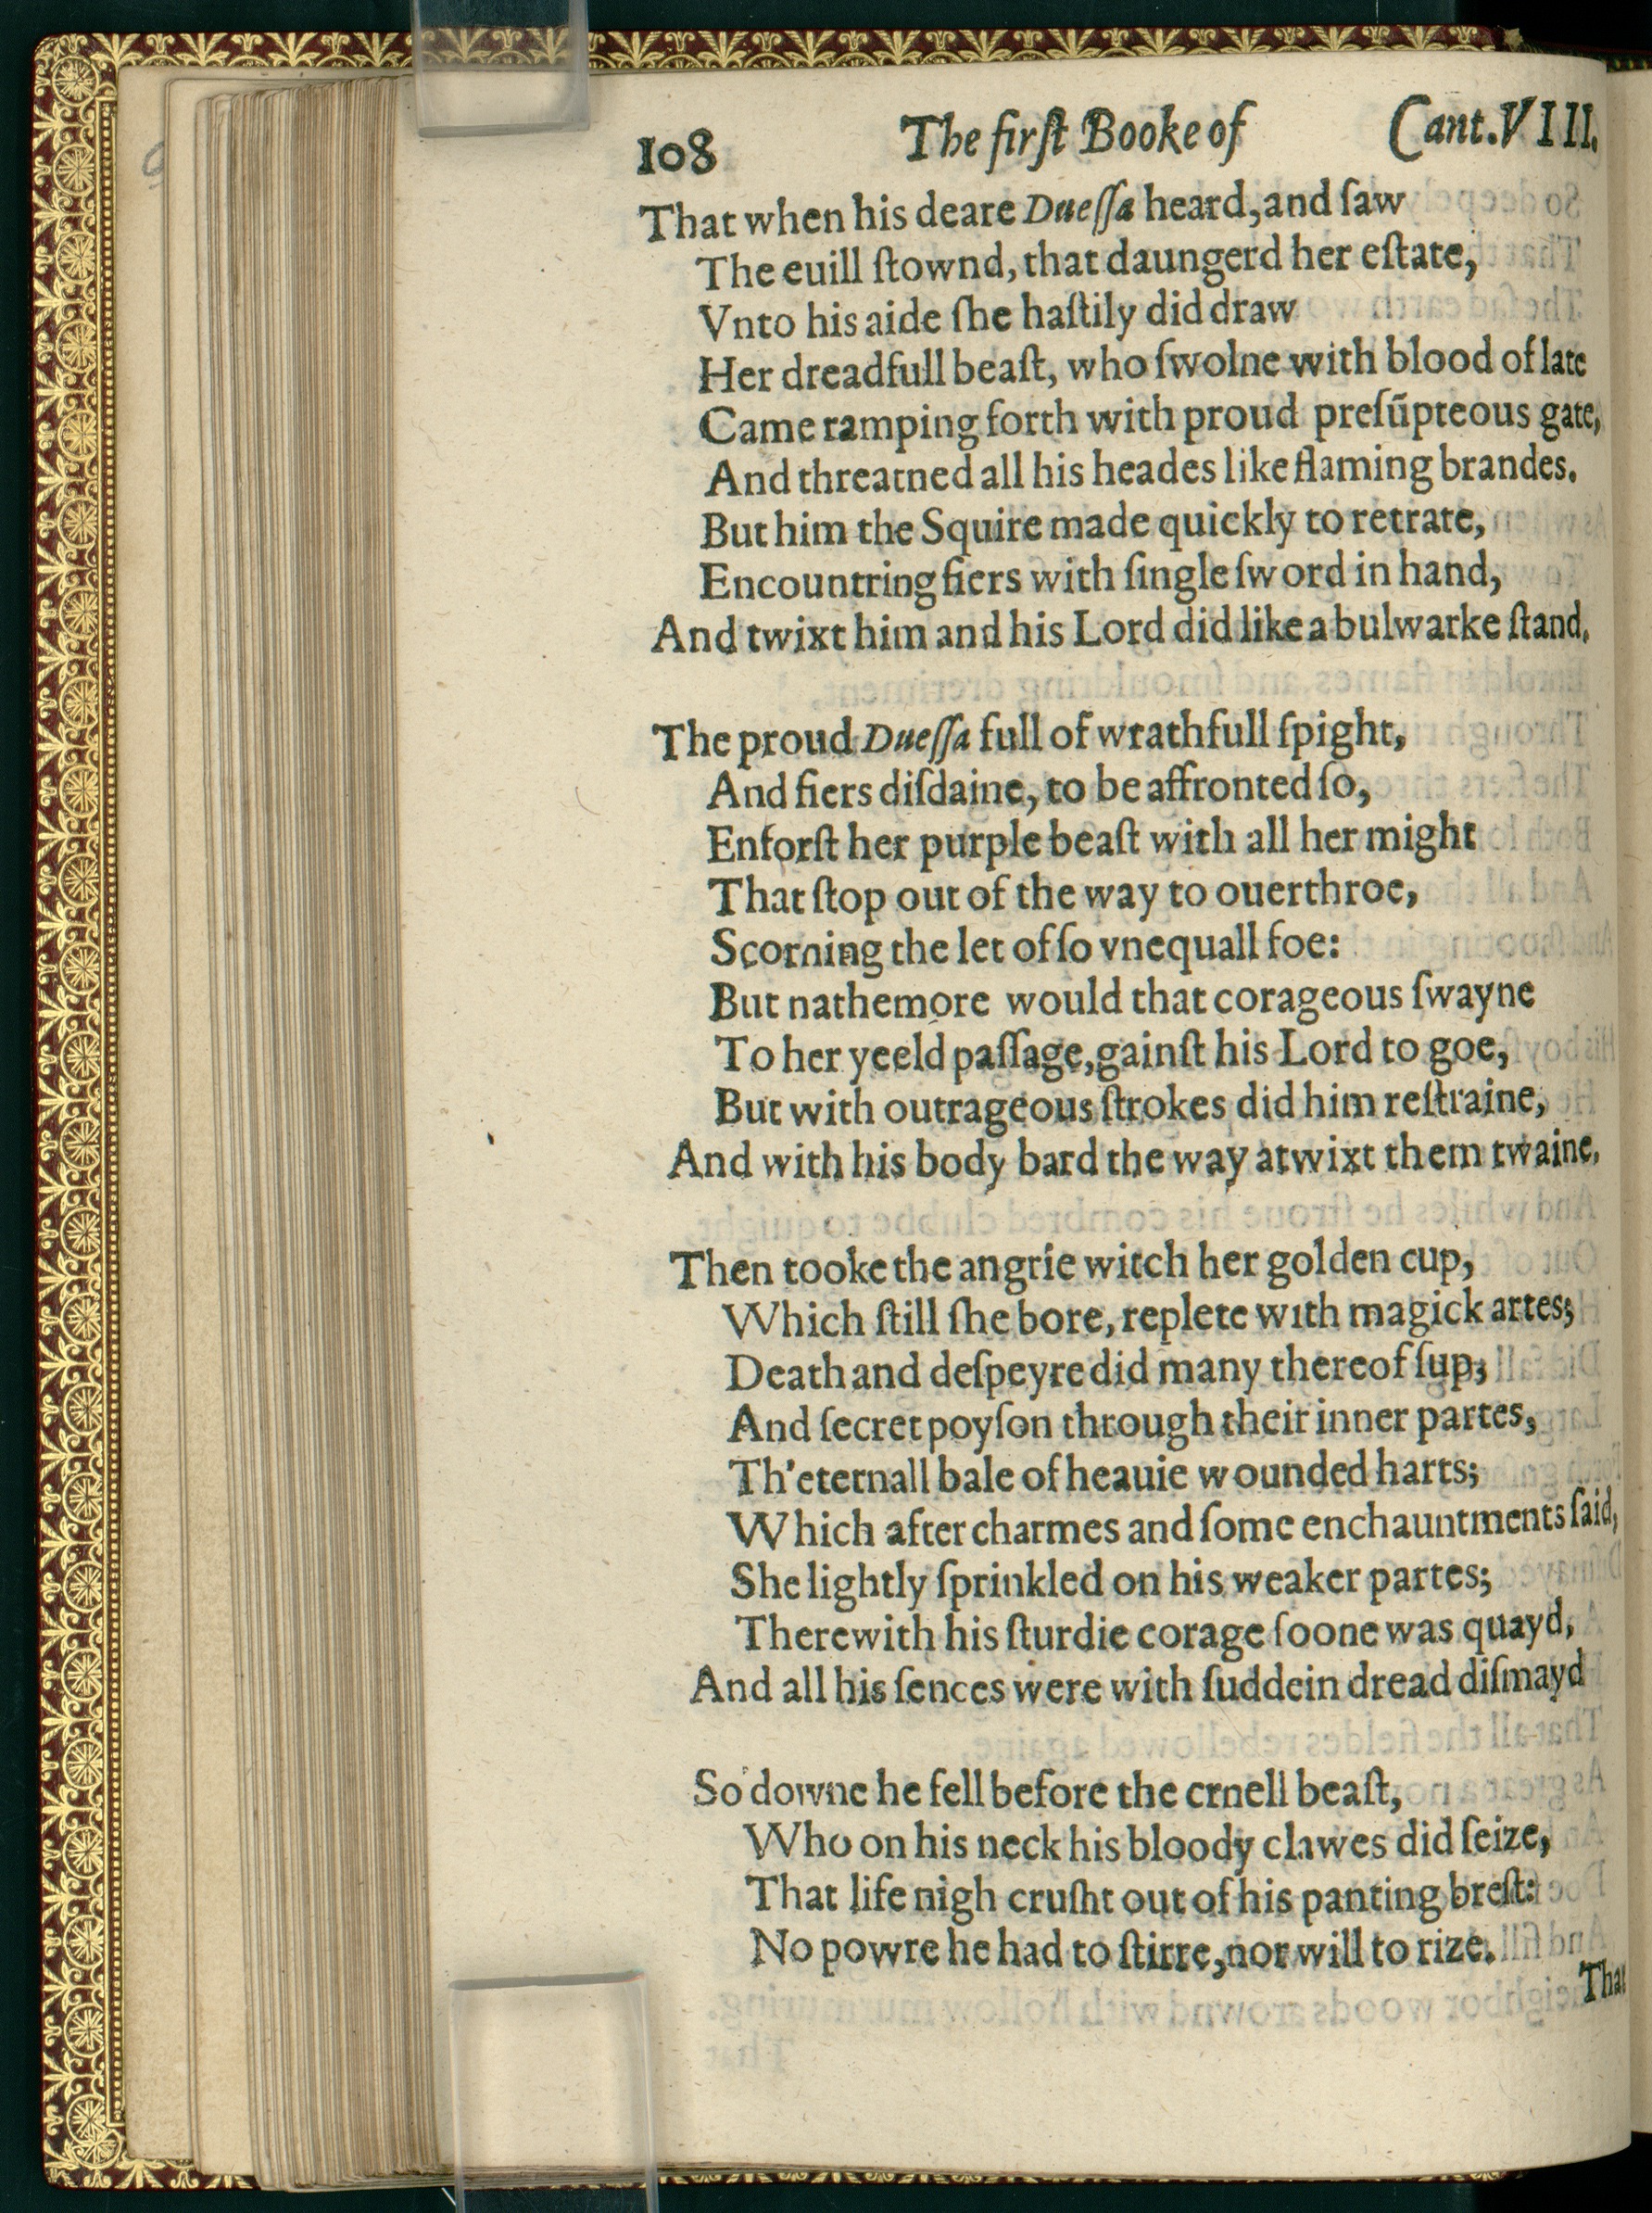 108 The firſt Booke of Cant. VIII.
That when his deare Dueſſa heard, and ſaw
The euill ſtownd, that daungerd her eſtate,
Vnto his aide ſhe haſtily did draw
Her dreadfull beaſt, who ſwolne with blood of late
Came ramping forth with proud preſūpteous gate,
And threatned all his heades like flaming brandes.
But him the Squire made quickly to retrate,
Encountring fiers with ſingle ſword in hand,
And twixt him and his Lord did like a bulwarke ſtand.
The proud Dueſſa full of wrathfull ſpight,
And fiers diſdaine, to be affronted ſo,
Enforſt her purple beaſt with all her might
That ſtop out of the way to ouerthroe,
Scorning the let of ſo vnequall foe:
But nathemore would that corageous ſwayne
To her yeeld paſſage, gainſt his Lord to goe,
But with outrageous ſtrokes did him reſtraine,
And with his body bard the way atwixt them twaine.
Then tooke the angrie witch her golden cup,
Which ſtill ſhe bore, replete with magick artes;
Death and deſpeyre did many thereof ſup,
And ſecret poyſon through their inner partes,
Th'eternall bale of heauie wounded harts;
Which after charmes and ſome enchauntments ſaid,
She lightly ſprinkled on his weaker partes;
Therewith his ſturdie corage ſoone was quayd,
And all his ſences were with ſuddein dread diſmayd
So downe he fell before the crnell beaſt,
Who on his neck his bloody clawes did ſeize,
That life nigh cruſht out of his panting breſt:
No powre he had to ſtirre, nor will to rize.
That